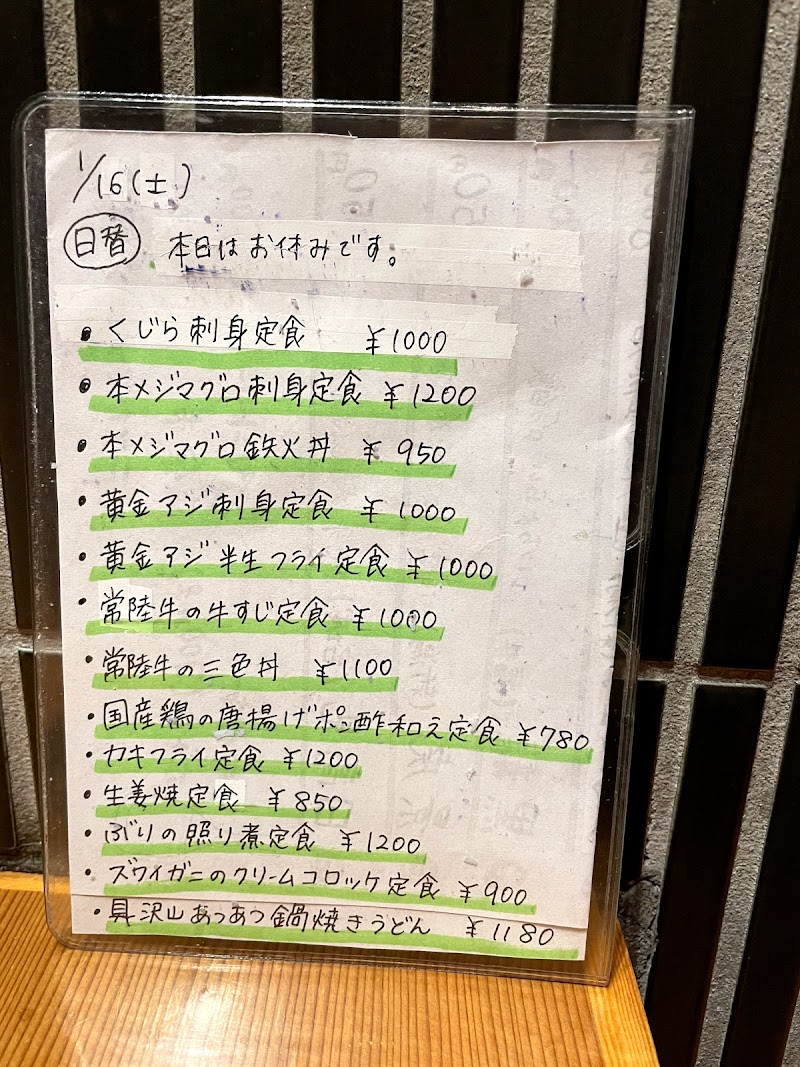 1/16(土)
日替 本日はお休みです。
• くじら刺身定食 ¥1000
• 本メジマグロ刺身定食 ¥1200
• 本メジマグロ鉄火丼 ¥950
• 黄金アジ刺身定食 ¥1000
• 黄金アジ半生フライ定食 ¥1000
• 常陸牛の牛すじ定食 ¥1000
• 常陸牛の三色丼 ¥1100
• 国産鶏の唐揚げポン酢和え定食 ¥780
• カキフライ定食 ¥1200
• 生姜焼定食 ¥850
• ぶりの照り煮定食 ¥1200
• ズワイガニのクリームコロッケ定食 ¥900
• 具沢山あつあつ鍋焼きうどん ¥1180